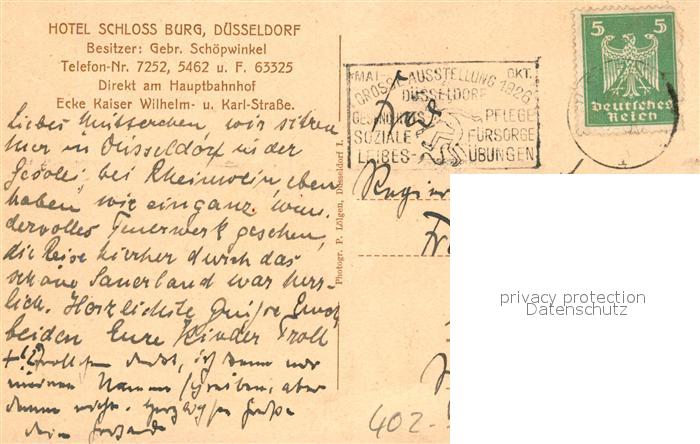 HOTEL SCHLOSS BURG, DÜSSELDORF
Besitzer: Gebr. Schöpwinkel
Telefon-Nr. 7252, 5462 u. F. 63325
Direkt am Hauptbahnhof
Ecke Kaiser Wilhelm- u. Karl-Straße.
Liebes Mütterchen, wir sitzen
hier in Düsseldorf in der
Gesolei bei Rheinwein, eben
haben wir ein ganz wun-
dervolles Feuerwerk gesehen,
die Reise hierher durch das
schöne Sauerland war herr-
lich. Herzlichste Grüsse Euch
beiden Eure Kinder Troll
+ Troll denkt, ich kann nur
meinen Namen schreiben, aber
denne nicht. Herzlichste Grüße
dein
Photogr. P. Lölgen, Düsseldorf 1.
MAI- OKT.
GROSSE AUSSTELLUNG 1926
DÜSSELDORF
GESUNDHEITS PFLEGE
SOZIALE FÜRSORGE
LEIBES- ÜBUNGEN
5 5
Deutsches
Reich
Frau
Regier
Fr
402-
privacy protection
Datenschutz